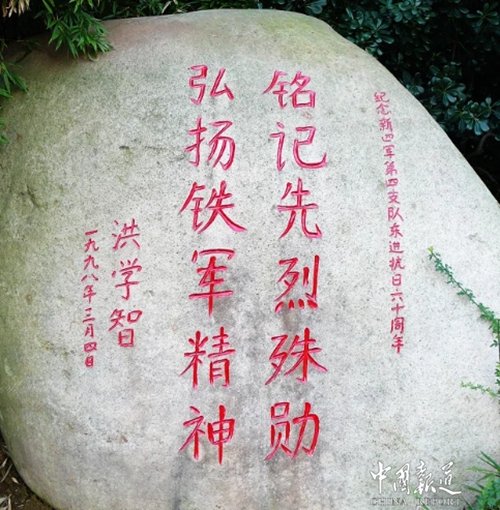 纪念新四军第四支队东进抗日六十周年
铭记先烈殊勋
弘扬铁军精神
洪学智
一九九八年三月四日
中国报道
CHINA REPORT